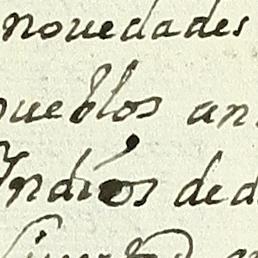 novedades
pueblos an
Yndios de d